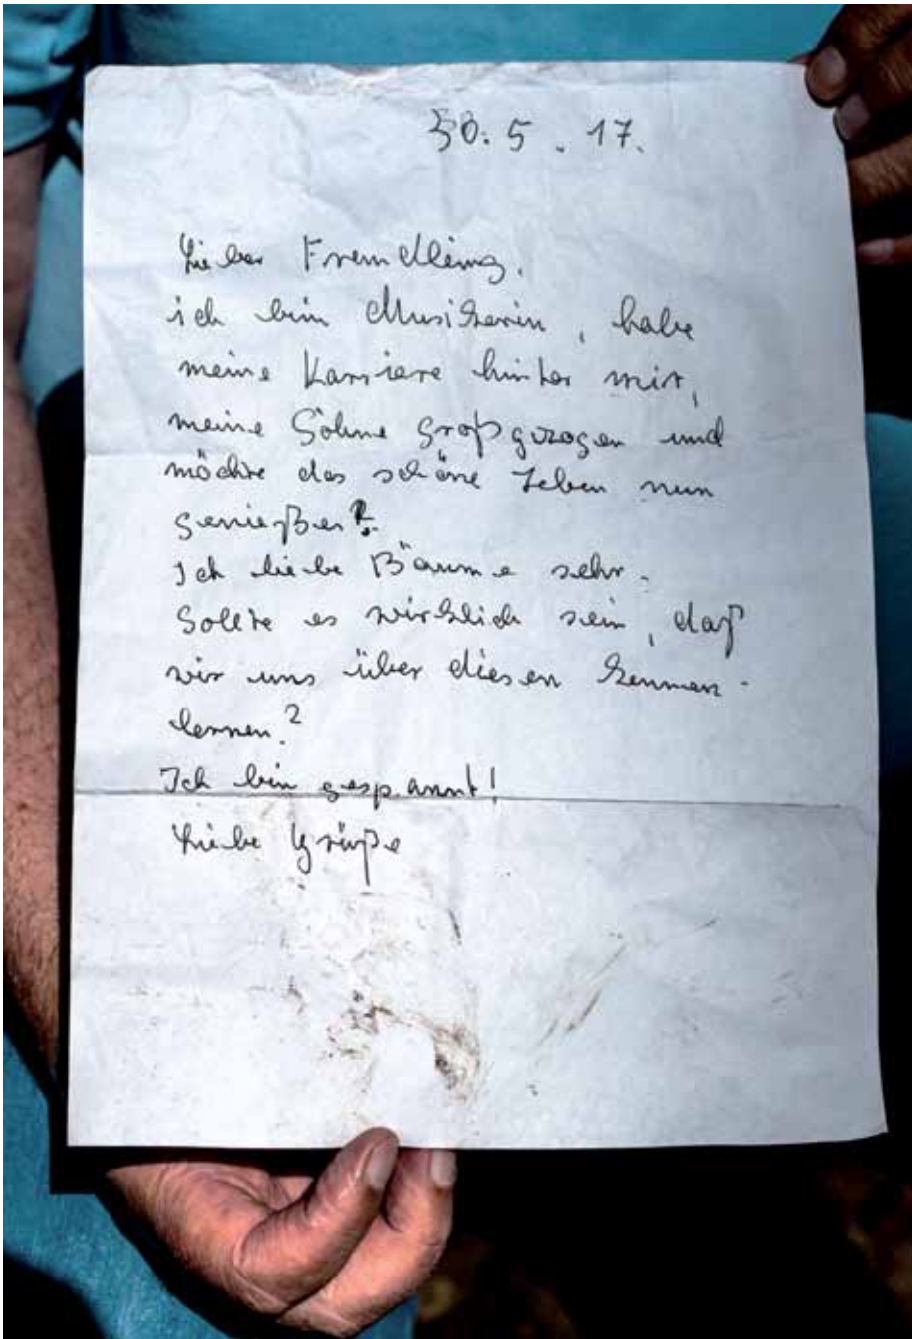 30.5.17.
Lieber Fremdling,
ich bin Musikerin, habe
meine Karriere hinter mir,
meine Söhne großgezogen und
möchte das schöne Leben nun
genießen.
Ich liebe Bäume sehr.
Sollte es wirklich sein, daß
wir uns über diesen kennen-
lernen?
Ich bin gespannt!
Liebe Grüße